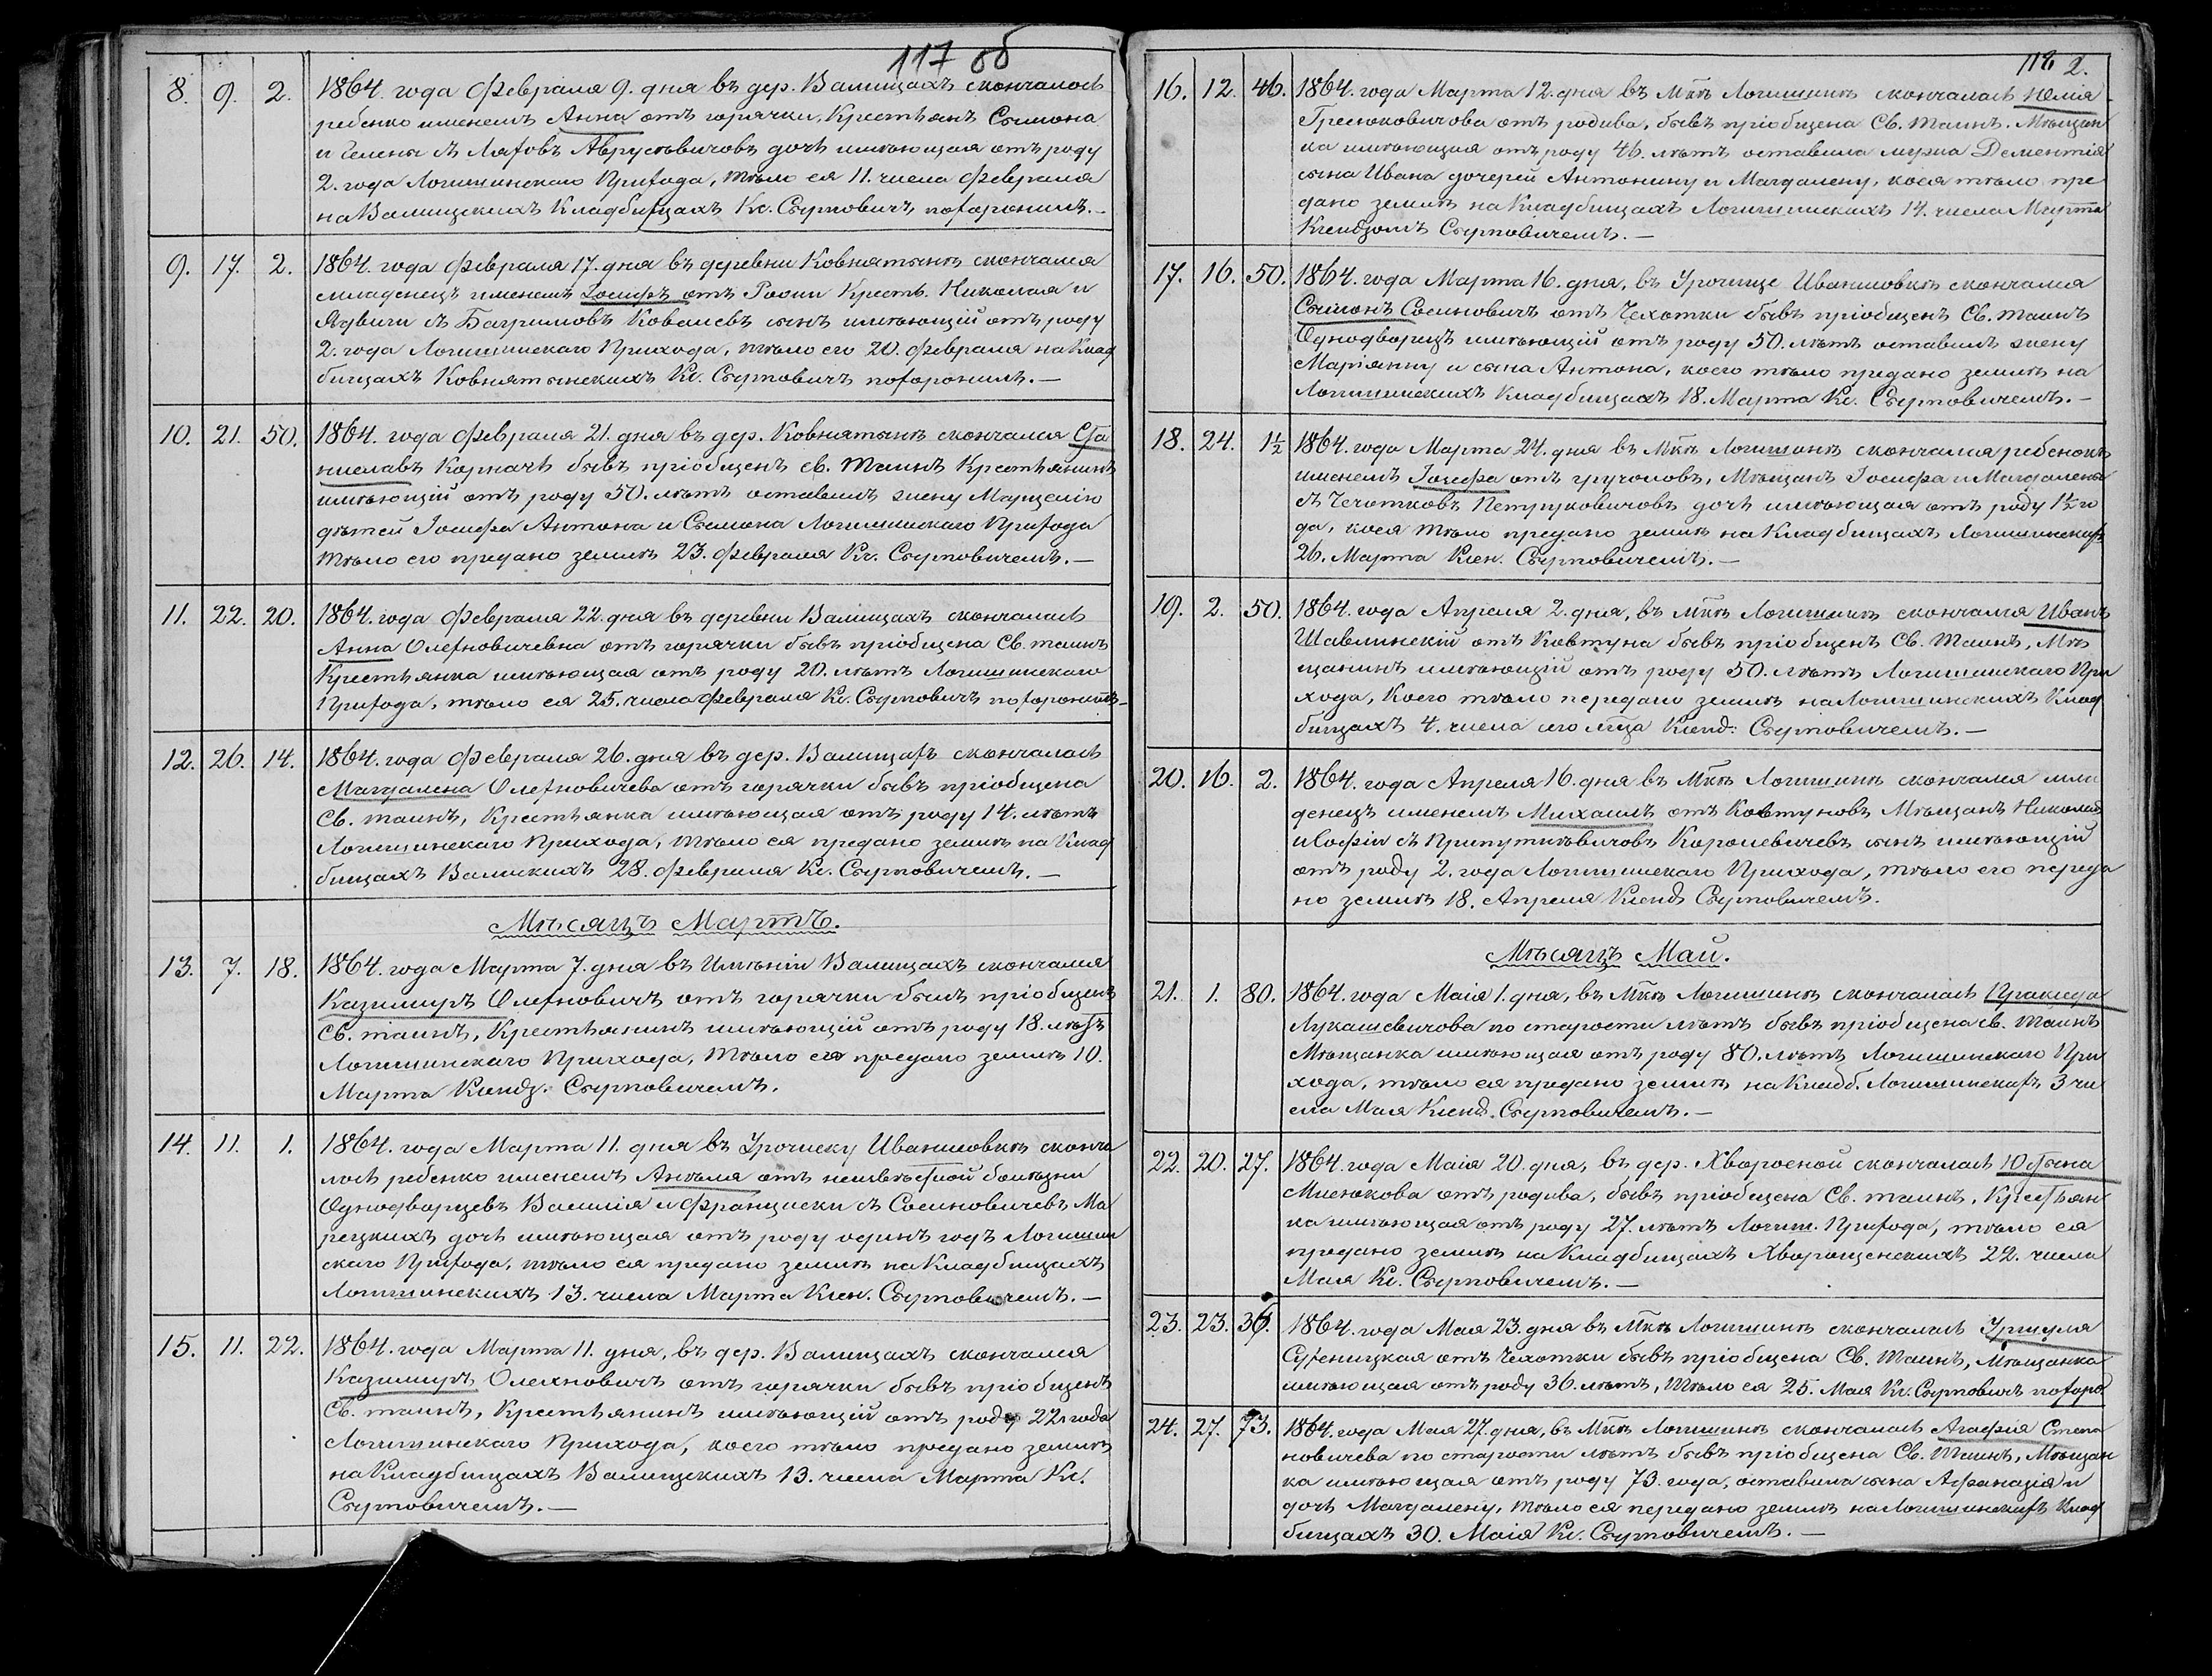 117 об
8. 9. 2. 1864. года Февраля 9. дня въ дер. Валищахъ скончалось
ребенко именемъ Анна отъ горячки, Крестьянъ Сымона
и Гелены съ Ляховъ Августовичовъ дочь имѣющая отъ роду
2. года Логишинскаго Прихода, тѣло ея 11. числа Февраля
на Валищскихъ Кладбищахъ Кс. Сыртовичъ похоронилъ.—
9. 17. 2. 1864. года Февраля 17. дня въ деревни Ковнятынѣ скончался
младенецъ именемъ Іосифъ отъ Кресть. Николая и
Ядвиги съ Багримовъ Ковалевъ сынъ имѣющій отъ роду
2. года Логишинскаго Прихода, тѣло его 20. Февраля на Клад
бищахъ Ковнятынскихъ Кс. Сыртовичъ похоронилъ.—
10. 21. 50. 1864. года Февраля 21. дня въ дер. Ковнятынѣ скончался Ста
ниславъ Корначъ бывъ пріобщенъ св. Таинъ Крестьянинъ
имѣющій отъ роду 50. лѣтъ оставилъ жену Марцелію
дѣтей Іосифа Антона и Сымона Логишинскаго Прихода
тѣло его предано землѣ 23. Февраля Кс. Сыртовичемъ.—
11. 22. 20. 1864. года Февраля 22. дня въ деревни Валищахъ скончалась
Анна Олехновичевна отъ горячки бывъ пріобщена Св. таинъ
Крестьянка имѣющая отъ роду 20. лѣтъ Логишинскаго
Прихода, тѣло ея 25. числа Февраля Кс. Сыртовичъ похоронилъ.—
12. 26. 14. 1864. года Февраля 26. дня въ дер. Валищахъ скончалась
Магдалена Олехновичева отъ горячки бывъ пріобщена
Св. таинъ, Крестьянка имѣющая отъ роду 14. лѣтъ
Логишинскаго Прихода, тѣло ея предано землѣ на Клад
бищахъ Валискихъ 28. Февраля Кс. Сыртовичемъ.—
Мѣсяцъ Мартъ.
13. 7. 18. 1864. года Марта 7. дня въ Имѣніи Валищахъ скончался
Казимиръ Олехновичъ отъ горячки былъ пріобщенъ
Св. таинъ, Крестьянинъ имѣющій отъ роду 18. лѣтъ
Логишинскаго Прихода, тѣло его предано землѣ 10.
Марта Ксендз. Сыртовичемъ.
14. 11. 1. 1864. года Марта 11. дня въ Урочиску Иванисовкѣ сконча
лось ребенко именемъ Анѣля отъ неизвѣстной болѣзни
Однодворцевъ Василія и Францишки съ Сосиновичевъ Ма
рецкихъ дочь имѣющая отъ роду одинъ годъ Логишин
скаго Прихода, тѣло ея предано землѣ на Кладбищахъ
Логишинскихъ 13. числа Марта Ксен. Сыртовичемъ.—
15. 11. 22. 1864. года Марта 11. дня, въ дер. Валищахъ скончался
Казимиръ Олехновичъ отъ горячки бывъ пріобщенъ
Св. таинъ, Крестьянинъ имѣющій отъ роду 22 года
Логишинскаго Прихода, коего тѣло предано землѣ
на Кладбищахъ Валищскихъ 13. числа Марта Кс.
Сыртовичемъ.—
118 2.
16. 12. 46. 1864. года Марта 12. дня въ Мкѣ Логишинѣ скончалась Юлія
Гресюковичова отъ родива, бывъ пріобщена Св. таинъ. Мѣщан
ка имѣющая отъ роду 46. лѣтъ оставила мужа Дементія
сына Ивана дочерей Антонину и Магдалену, коея тѣло пре
дано землѣ на Кладбищахъ Логишинскихъ 14. числа Марта
Ксендзомъ Сыртовичемъ.—
17. 16. 50. 1864. года Марта 16. дня, въ Урочище Иванисовкѣ скончался
Сымонъ Сосиновичъ отъ Чехотки бывъ пріобщенъ Св. таинъ
Однодворецъ имѣющій отъ роду 50. лѣтъ оставилъ жену
Маріянну и сына Антона, коего тѣло предано землѣ на
Логишинскихъ Кладбищахъ 18. Марта Кс. Сыртовичемъ.—
18. 24. 1½ 1864. года Марта 24. дня въ Мкѣ Логишинѣ скончался ребенокъ
именемъ Іозефа отъ Мѣщанъ Іосифа и Магдалены
съ Чечотковъ Петруковичовъ дочь имѣющая отъ роду 1½ го
да, коея тѣло предано землѣ на Кладбищахъ Логишинскихъ
26. Марта Ксен. Сыртовичемъ.—
19. 2. 50. 1864. года Апреля 2. дня, въ Мкѣ Логишинѣ скончался Иванъ
Шавлинскій отъ Ковтуна бывъ пріобщенъ Св. Таинъ, Мѣ
щанинъ имѣющій отъ роду 50. лѣтъ Логишинскаго При
хода, Коего тѣло передано землѣ на Логишинскихъ Клад
бищахъ 4. числа сего мца Ксенд: Сыртовичемъ.—
20. 16. 2. 1864. года Апреля 16. дня въ Мкѣ Логишинѣ скончался мла
денецъ именемъ Михаилъ отъ Ковтуновъ Мѣщанъ Николая
и Софіи съ Припутнѣвичовъ Королевичевъ сынъ имѣющій
отъ роду 2. года Логишинскаго Прихода, тѣло его переда
но землѣ 18. Апреля Ксенд Сыртовичемъ.
Мѣсяцъ Май.
21. 1. 80. 1864. года Маія 1. дня, въ Мкѣ Логишинѣ скончалась Пракседа
Лукашевичова по старости лѣтъ бывъ пріобщена св. таинъ
Мѣщанка имѣющая отъ роду 80. лѣтъ Логишинскаго При
хода, тѣло ея предано землѣ на Кладб. Логишинскихъ 3 чи
сла Мая Ксенд. Сыртовичемъ.—
22. 20. 27. 1864. года Маія 20. дня, въ дер. Хворосной скончалась Юстына
Мисюкова отъ родива, бывъ пріобщена Св. таинъ, Крестьян
ка имѣющая отъ роду 27. лѣтъ Логиш. Прихода, тѣло ея
предано землѣ на Кладбищахъ Хворощенскихъ 22. числа
Мая Кс. Сыртовичемъ.—
23. 23. 36. 1864. года Мая 23. дня въ Мкѣ Логишинѣ скончалась Уршуля
отъ Чехотки бывъ пріобщена Св. таинъ, Мѣщанка
имѣющая отъ роду 36. лѣтъ, тѣло ея 25. Мая Кс. Сыртовичъ похоро.
24. 27. 73. 1864. года Мая 27. дня, въ Мкѣ Логишинѣ скончалась Агафія Степа
новичева по старости лѣтъ бывъ пріобщена Св. Таинъ, Мѣщан
ка имѣющая отъ роду 73. года, оставила сына Афаназія и
дочь Магдалену, тѣло ея передано землѣ на Логишинскихъ Клад
бищахъ 30. Маія Кс. Сыртовичемъ.—